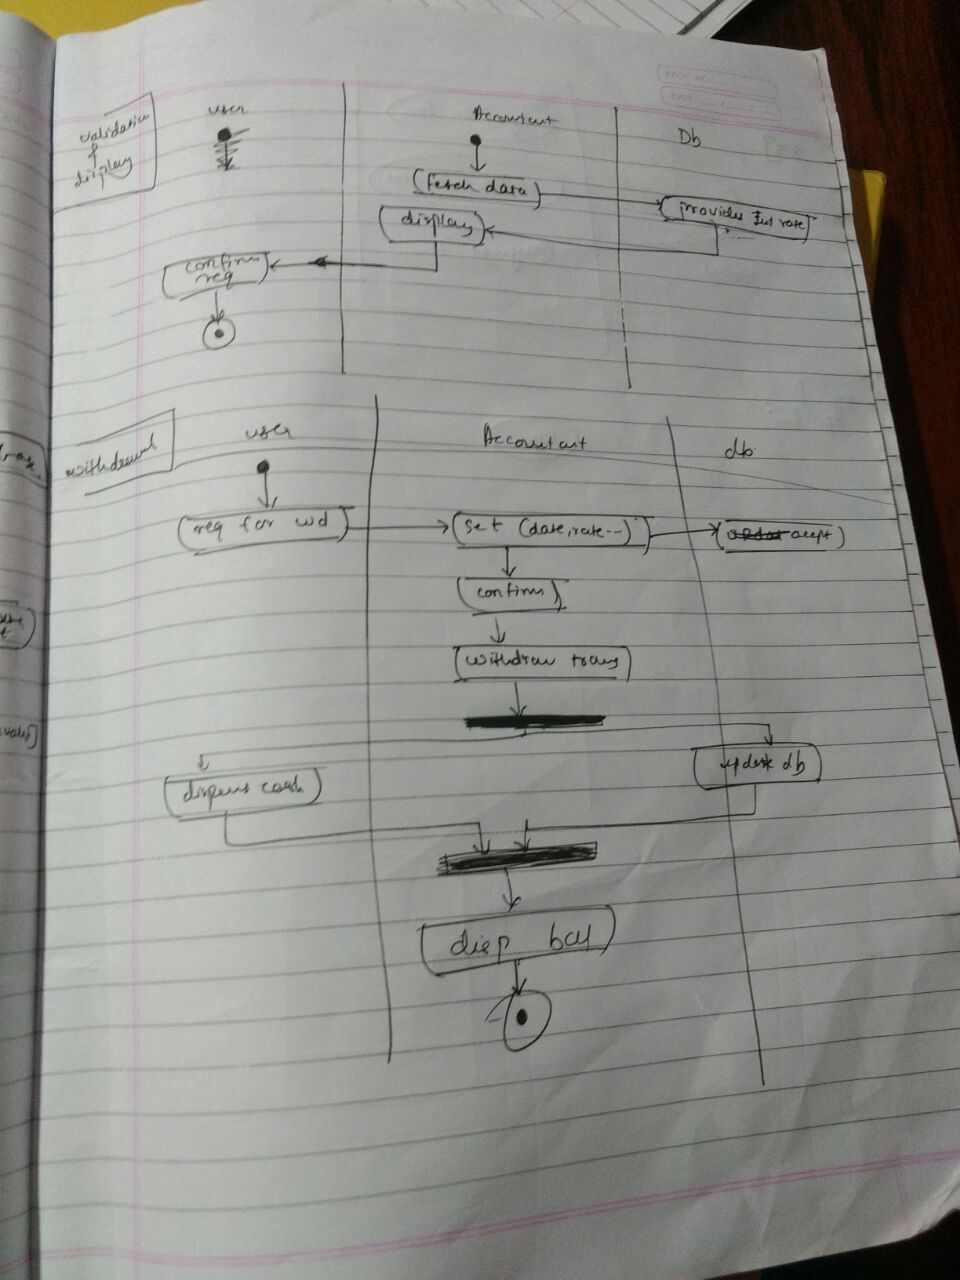 PAGE NO.
DATE
validation
&
display
user
Accountant
Db
fetch data
provides Int rate
display
confirm
req
withdrawal
user
Accountant
db
req for wd
set (date, rate--)
accept
confirm
withdraw trans
dispense cash
update db
disp bal